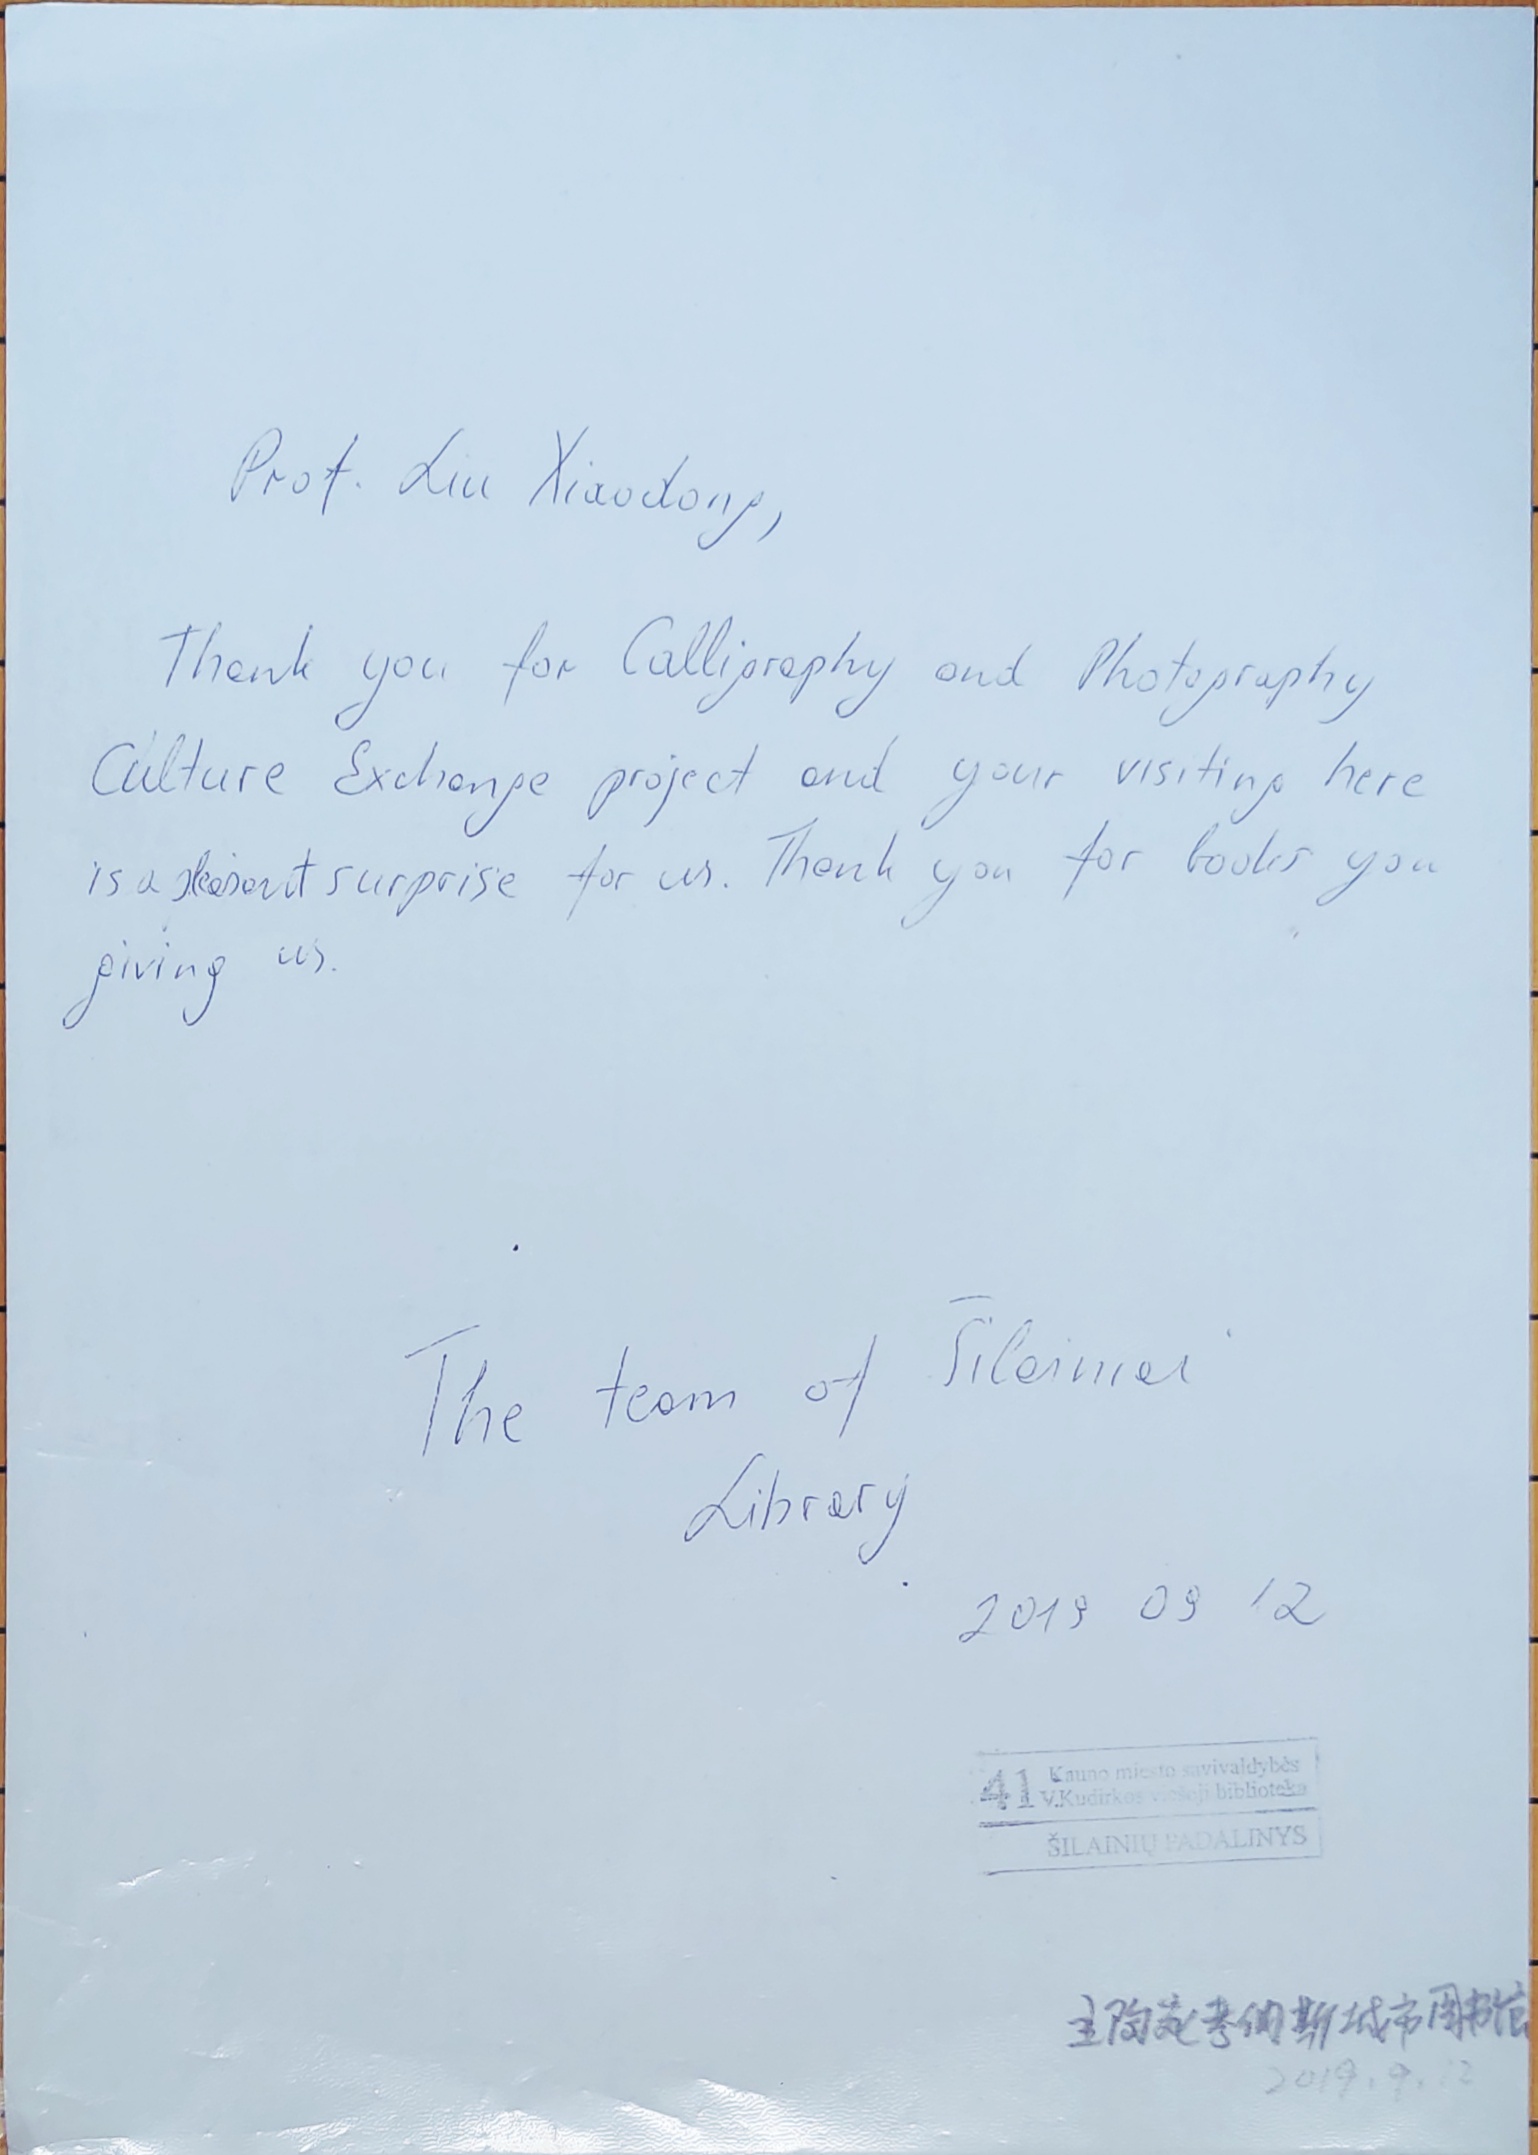 Prof. Liu Xiaodong,
Thank you for Calligraphy and Photography
Culture Exchange project and your visiting here
is a pleasant surprise for us. Thank you for books you
giving us.
The team of Šilainiai
Library
2019 09 12
41 Kauno miesto savivaldybės
V.Kudirkos viešoji biblioteka
ŠILAINIŲ PADALINYS
考纳斯城市图书馆
2019.9.12